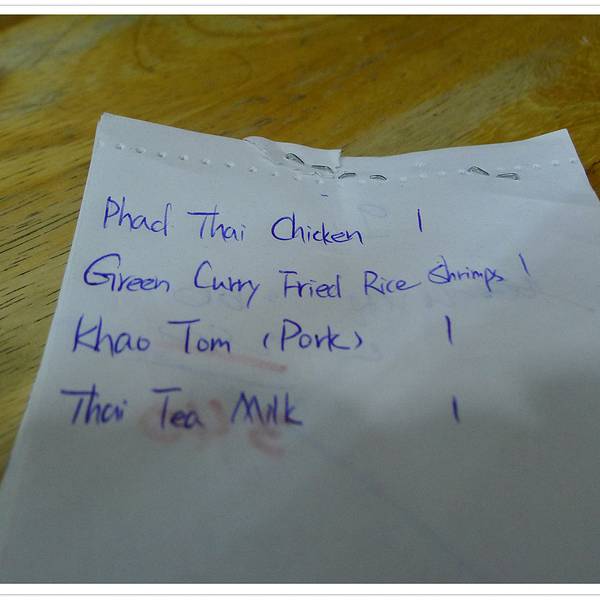 Phad Thai Chicken 1
Green Curry Fried Rice Shrimps 1
Khao Tom (Pork) 1
Thai Tea Milk 1